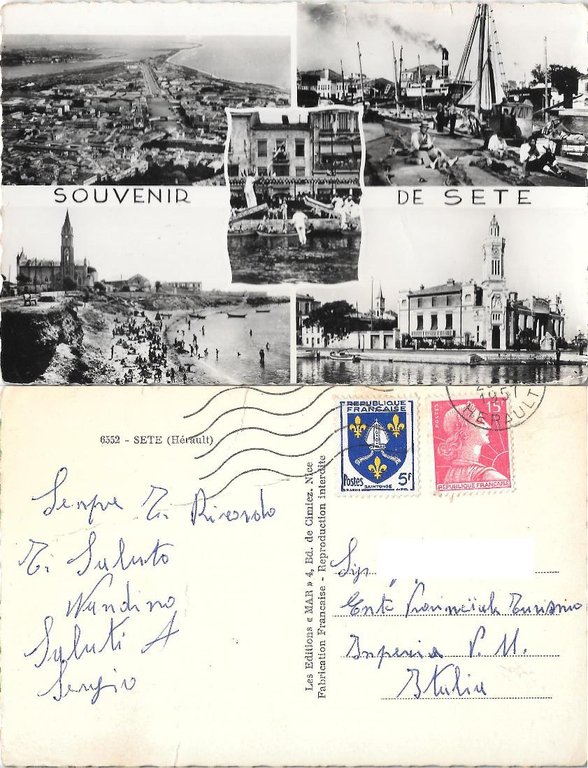 SOUVENIR DE SETE
6552 - SETE (Hérault)
REPUBLIQUE FRANÇAISE
Postes 5F
SAINTONGE
POSTES 15F
REPUBLIQUE FRANÇAISE
HERAULT
Les Editions « MAR » 4, Bd. de Cimiez, Nice
Fabrication Française - Reproduction interdite
Sempre Ti Ricordo
Ti Saluto
Nandino
Saluti A
Sergio
Sig
Ente Provinciale Turismo
Imperia P. M.
Italia